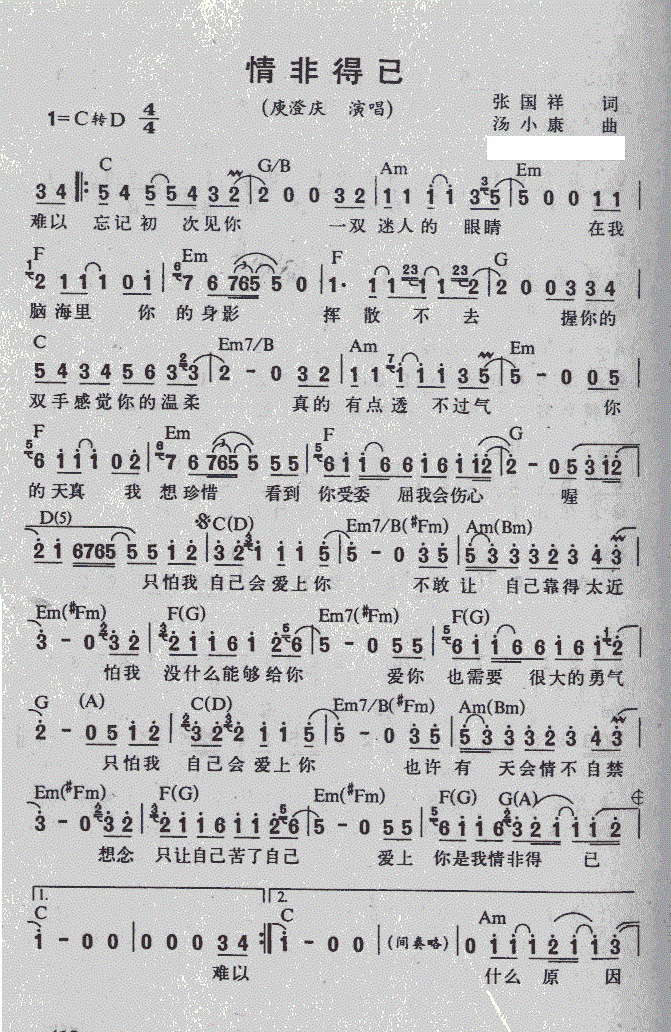 情非得已
(庾澄庆 演唱)
张国祥 词
1=C转D 4/4
汤小康 曲
C G/B Am Em
3 4 𝄆 5 4 5 5 4 3 2 | 2 0 0 3 2 | 1 1 i i 3 5 | 5 0 0 1 1 |
难以 忘记 初 次见你 一双 迷人的 眼睛 在我
F Em F G
2 1 1 1 0 i | 7 6 765 5 0 | 1· 1 i i 2 | 2 0 0 3 3 4 |
脑海里 你 的身影 挥 散 不 去 握你的
C Em7/B Am Em
5 4 3 4 5 6 3 3 | 2 - 0 3 2 | 1 1 i i i 3 5 | 5 - 0 0 5 |
双手感觉你的温柔 真的 有点透 不过气 你
F Em F G
6 i i i 0 2 | 7 6 765 5 5 5 | 6 i i 6 6 i 6 i i2 | 2 - 0 5 3 i2 |
的天真 我 想珍惜 看到 你受委 屈我会伤心 喔
D(5) C(D) Em7/B(#Fm) Am(Bm)
2 i 6765 5 5 i 2 | 3 2 i i i 5 | 5 - 0 3 5 | 5 3 3 3 2 3 4 3
只怕我 自己会爱上你 不敢让 自己靠得太近
Em(#Fm) F(G) Em7(#Fm) F(G)
3 - 0 3 2 | 2 i i 6 i 2 6 | 5 - 0 5 5 | 6 i i 6 6 i 6 i 2
怕我 没什么能够给你 爱你 也需要 很大的勇气
G (A) C(D) Em7/B(#Fm) Am(Bm)
2 - 0 5 i 2 | 3 2 2 i i 5 | 5 - 0 3 5 | 5 3 3 3 2 3 4 3
只怕我 自己会爱上你 也许有 天会情不自禁
Em(#Fm) F(G) Em(#Fm) F(G) G(A)
3 - 0 3 2 | 2 i i 6 i i 2 6 | 5 - 0 5 5 | 6 i i 6 3 2 i i i 2
想念 只让自己苦了自己 爱上 你是我情非得 已
1. 2.
C C Am
i - 0 0 | 0 0 0 3 4 𝄇 i - 0 0 | (间奏略) | 0 i i i 2 i i 3
难以 什么 原 因